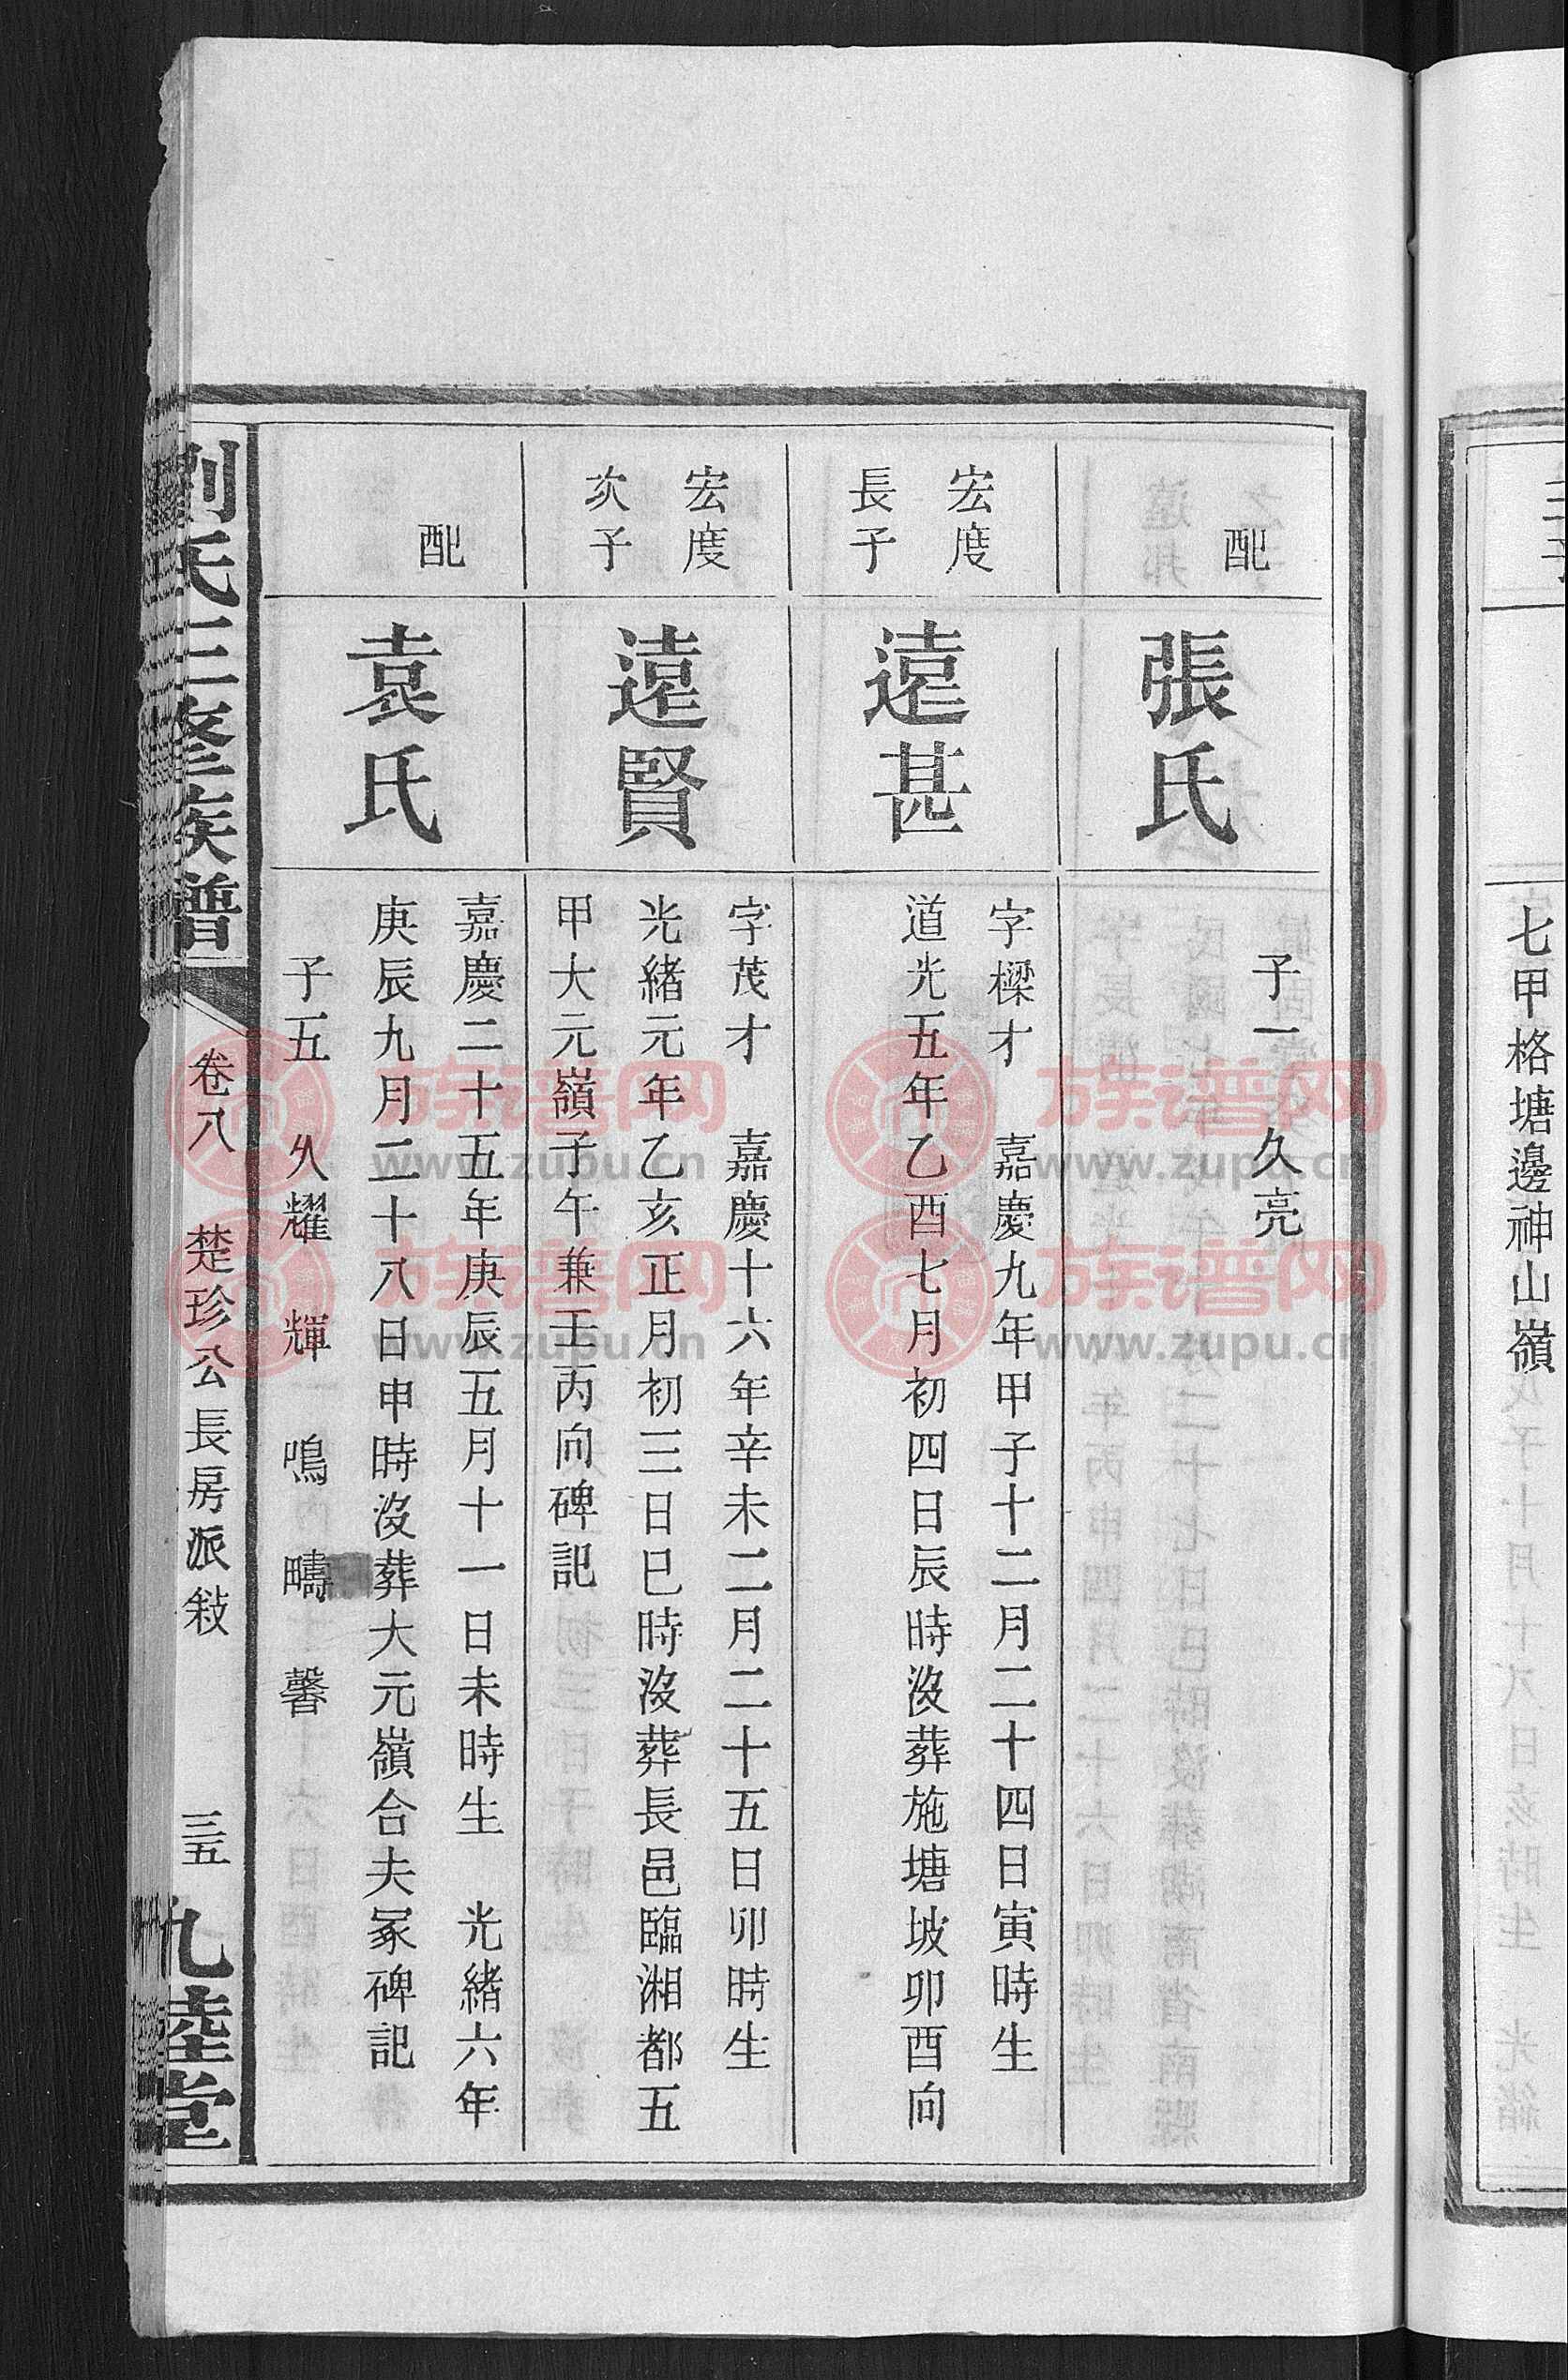 三子
七甲格塘邊神山嶺
配
張氏
子一 久亮
宏度
長子
遠甚
字樑才 嘉慶九年甲子十二月二十四日寅時生
道光五年乙酉七月初四日辰時沒葬施塘坡卯酉向
宏度
次子
遠賢
字茂才 嘉慶十六年辛未二月二十五日卯時生
光緒元年乙亥正月初三日巳時沒葬長邑臨湘都五
甲大元嶺子午兼壬丙向碑記
配
袁氏
嘉慶二十五年庚辰五月十一日未時生 光緒六年
庚辰九月二十八日申時沒葬大元嶺合夫冢碑記
子五 久耀 輝 鳴 疇 馨
劉氏三修族譜
卷八 楚珍公長房派敍 三五 九陸堂
族谱网
www.zupu.cn
族谱网
www.zupu.cn
族谱网
www.zupu.cn
族谱网
www.zupu.cn